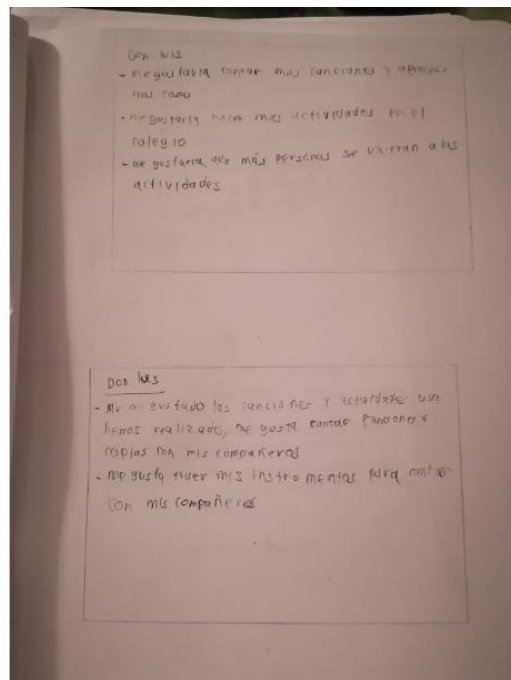 Don luis
- me gustaria cantar mas canciones y aprender
mas cosas
- me gustaria hacer mas actividades en el
colegio
- me gustaria que más personas se unieran a las
actividades
Don luis
- Me a gustado las canciones y actividades que
hemos realizado, me gusta cantar canciones y
coplas con mis compañeros
- me gusta traer mis instrumentos para cantar
con mis compañeros